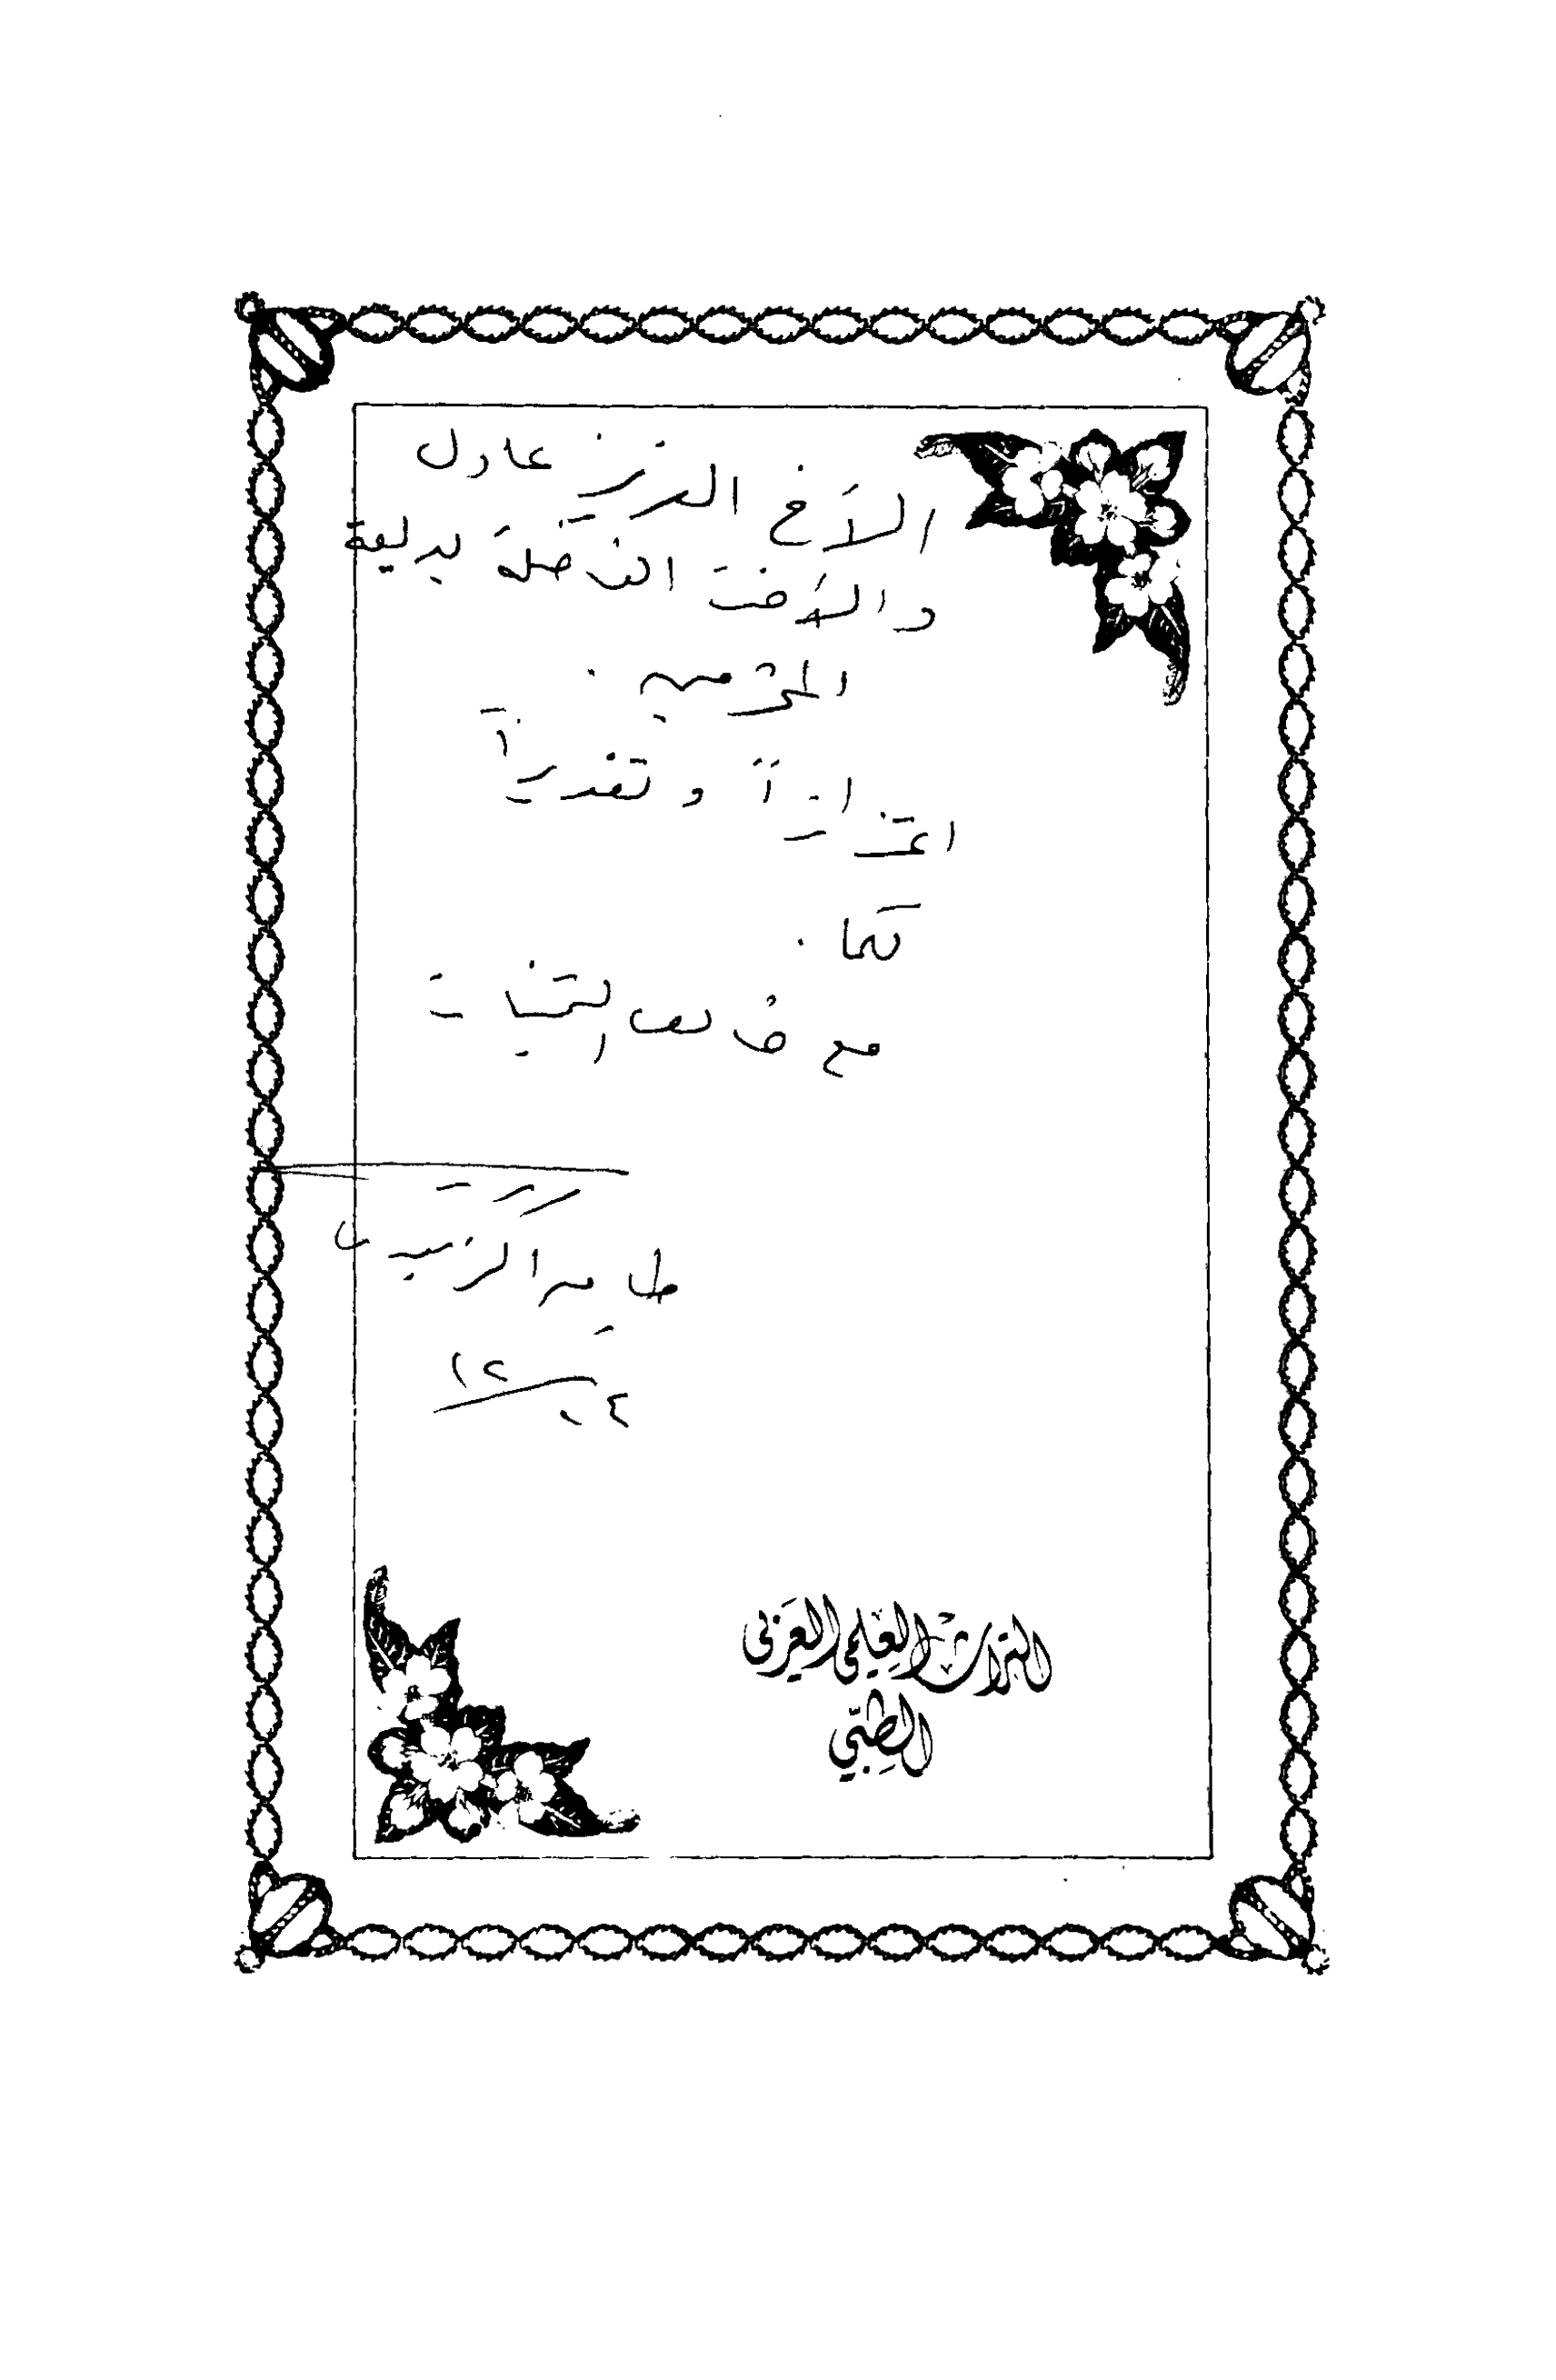 الأخ العزيز عادل
والأخت الفاضلة بديعة
المحترمين .
اعتزازاً وتقديراً
لكما .
مع خالص التحيات
طاهر
التراث العلمي العربي
الطبّي